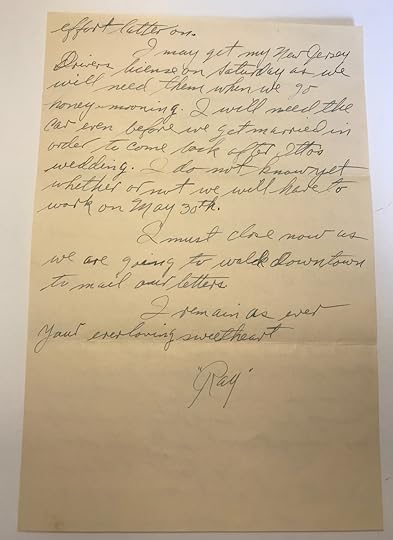 effort letter on.
I may get my New Jersey
Drivers license on Saturday as we
will need them when we go
honey-mooning. I will need the
car even before we get married in
order to come back after Ottos
wedding. I do not know yet
whether or not we will have to
work on May 30th.
I must close now as
we are going to walk downtown
to mail our letters
I remain as ever
Your everloving sweetheart
"Ray"